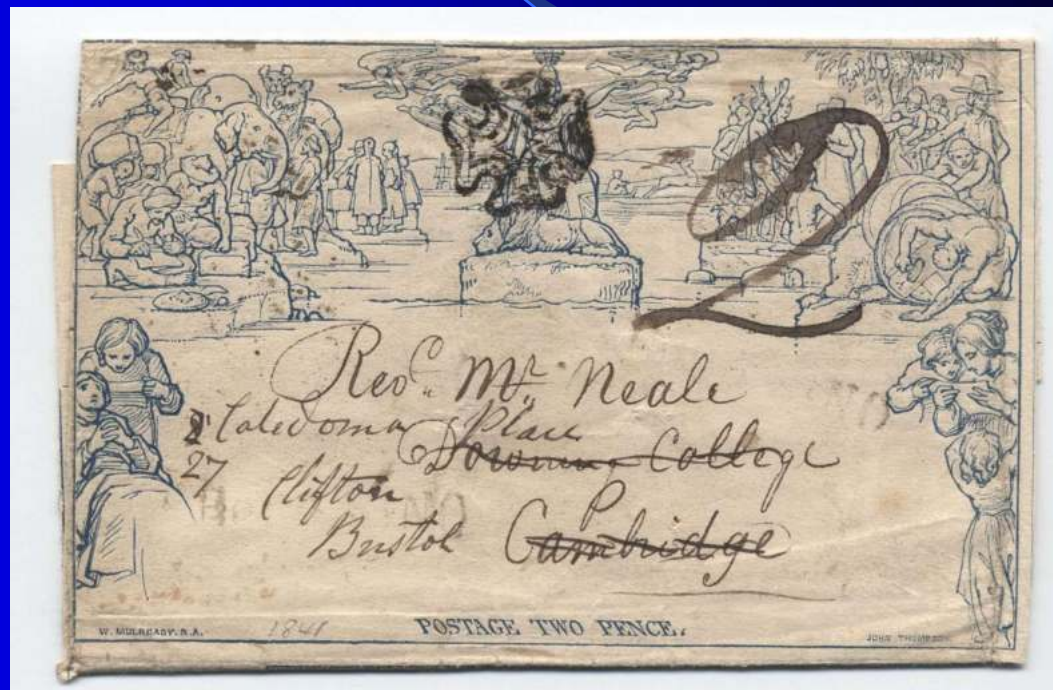 2
Revd. Mr. Neale
Caledonia Place
Downing College
27
Clifton
Bristol
Cambridge
W. MULREADY. R.A.
1841
POSTAGE TWO PENCE.
JOHN THOMPSON